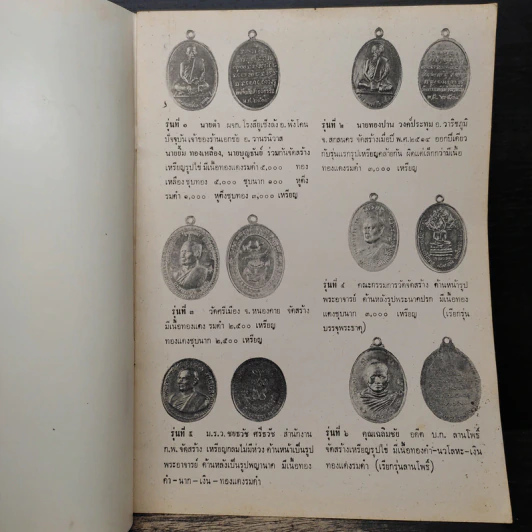 รุ่นที่ ๑ นายดำ ผจก. โรงสีบุเรืองัง อ. พังโคน
ปัจจุบัน เจ้าของร้านเอกชัย อ. วานรนิวาส
นายยิ้ม ทองเหลือง, นายบุญธันย์ ร่วมกันจัดสร้าง
เหรียญรูปไข่ มีเนื้อทองแดงรมดำ ๕,๐๐๐ ทอง
เหลืองชุบทอง ๕,๐๐๐ ชุบนาก ๑๐๐ หูตึง
รมดำ ๑,๐๐๐ หูตึงชุบทอง ๓,๐๐๐ เหรียญ
รุ่นที่ ๒ นายทองปาน วงค์ประทุม อ. วาริชภูมิ
จ. สกลนคร จัดสร้างเมื่อปี พ.ศ. ๒๕๑๔ ออกปีเดียว
กับรุ่นแรกรูปเหรียญคล้ายกัน ผิดแต่เล็กกว่ามีเนื้อ
ทองแดงรมดำ ๓,๐๐๐ เหรียญ
รุ่นที่ ๓ วัดศรีเมือง จ. หนองคาย จัดสร้าง
มีเนื้อทองแดง รมดำ ๒,๕๐๐ เหรียญ
ทองแดงชุบนาก ๒,๕๐๐ เหรียญ
รุ่นที่ ๔ คณะกรรมการวัดจัดสร้าง ด้านหน้ารูป
พระอาจารย์ ด้านหลังรูปพระนาคปรก มีเนื้อทอง
แดงชุบนาก ๓,๐๐๐ เหรียญ (เรียกรุ่น
บรรจุพระธาตุ)
รุ่นที่ ๕ ม.ร.ว. ศรีธวัช สำนักงาน
ก.พ. จัดสร้าง เหรียญกลมไม่มีห่วง ด้านหน้าเป็นรูป
พระอาจารย์ ด้านหลังเป็นรูปพญานาค มีเนื้อทอง
คำ-นาก-เงิน-ทองแดงรมดำ
รุ่นที่ ๖ คุณเฉลิมชัย อดีต บ.ก. ลานโพธิ์
จัดสร้างเหรียญรูปไข่ มีเนื้อทองคำ-นวโลหะ-เงิน
ทองแดงรมดำ (เรียกรุ่นลานโพธิ์)